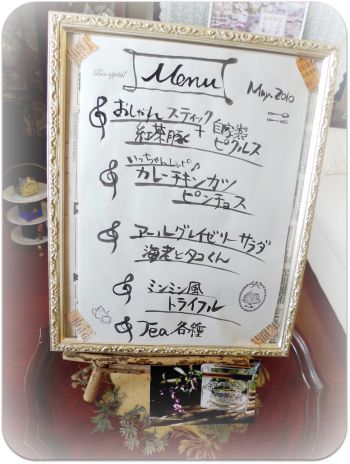 Bon appetit!
Menu
May. 2010
おしゃれスティック
紅茶豚 + 自家製ピクルス
いっちゃんレシピ♪
カレーチキンカツ
ピンチョス
アールグレイゼリーサラダ
海老とタコくん
ミンミン風
トライフル
Tea各種